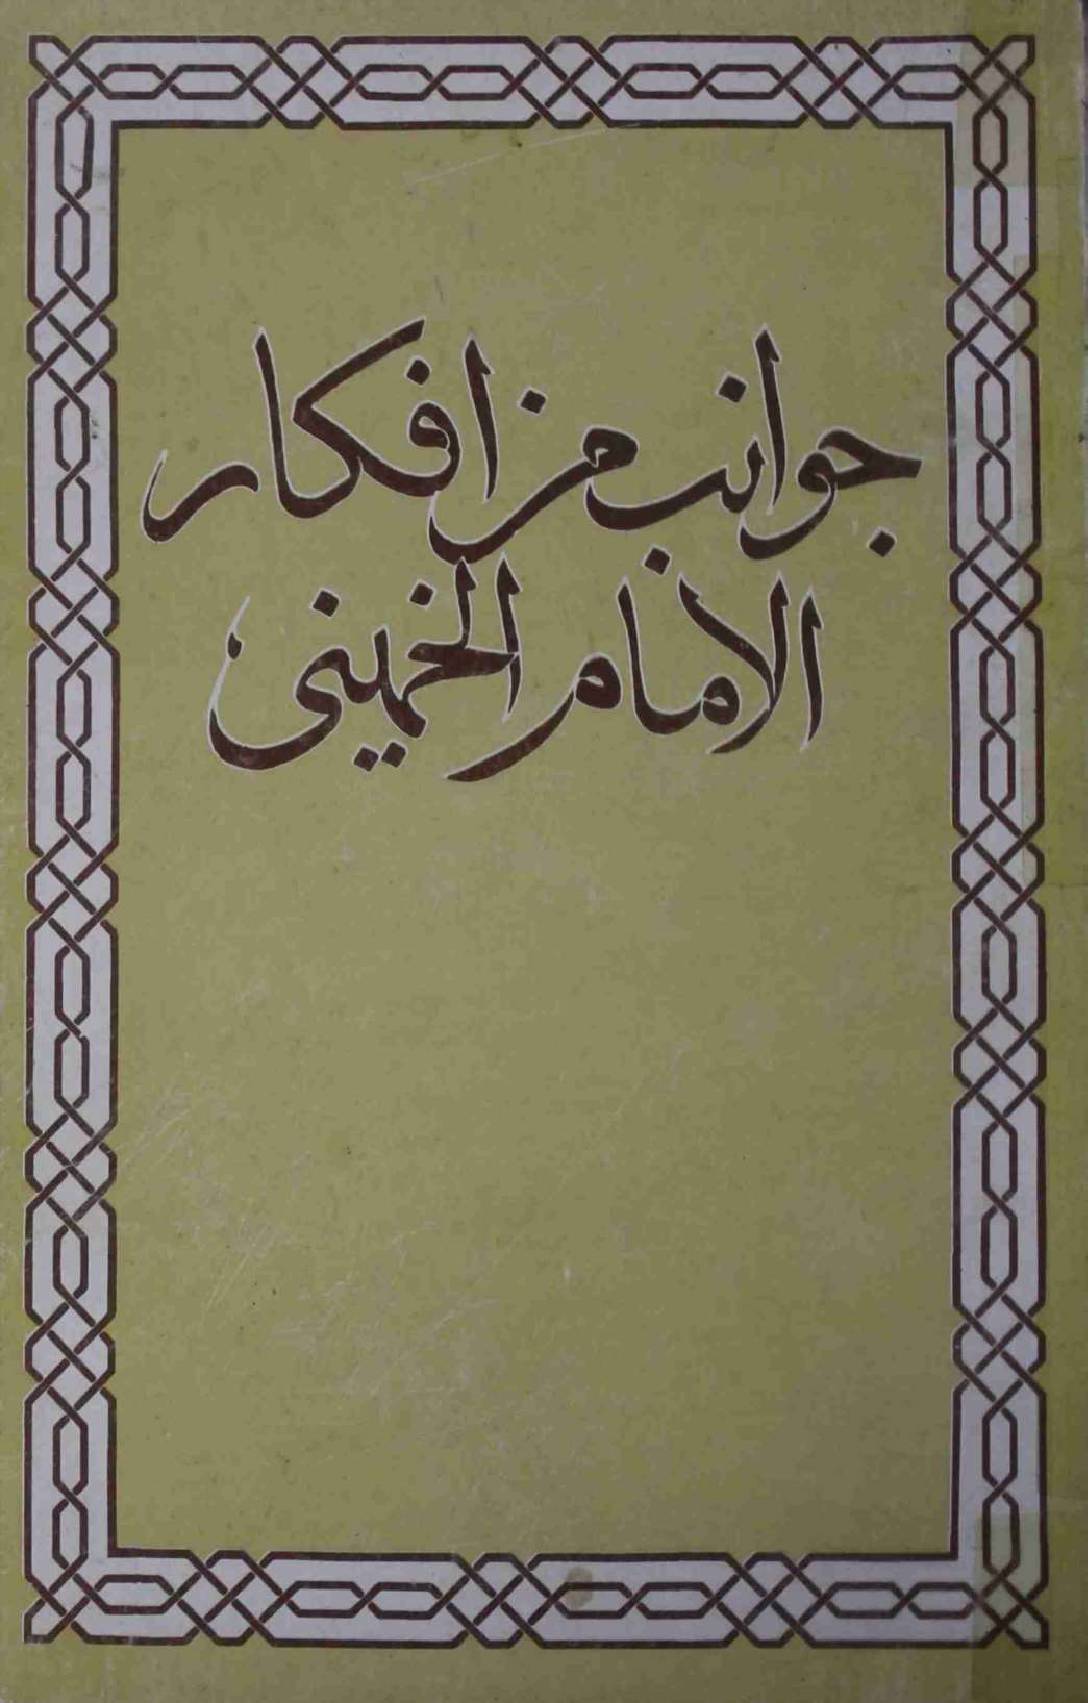 جوانب من افكار
الامام الخميني